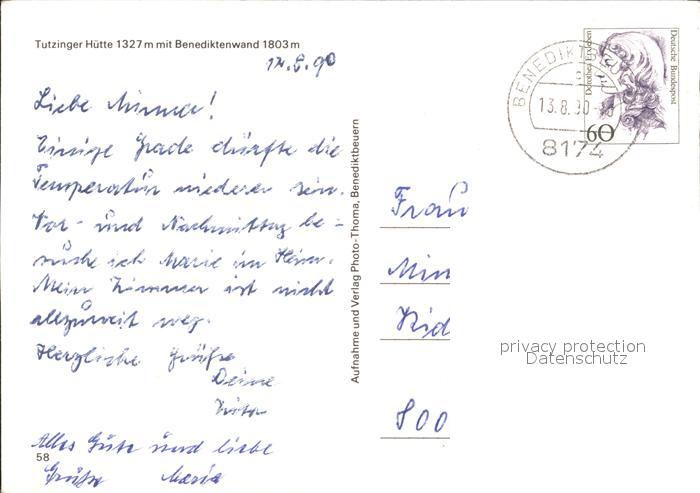 Tutzinger Hütte 1327 m mit Benediktenwand 1803 m
12.8.90
Liebe Minna!
Einige Grade dürfte die
Temperatur niederer sein.
Vor- und Nachmittag be-
suche ich Marie im Heim.
Mein Zimmer ist nicht
allzuweit weg.
Herzliche Grüße
Deine
Alles Gute und liebe
Grüße Marie
58
Aufnahme und Verlag Photo-Thoma, Benediktbeuern
BENEDIKTBEUERN
13.8.90
8174
Dorothea Erxleben
Deutsche Bundespost
60
Frau
Min
Rid
800
privacy protection
Datenschutz